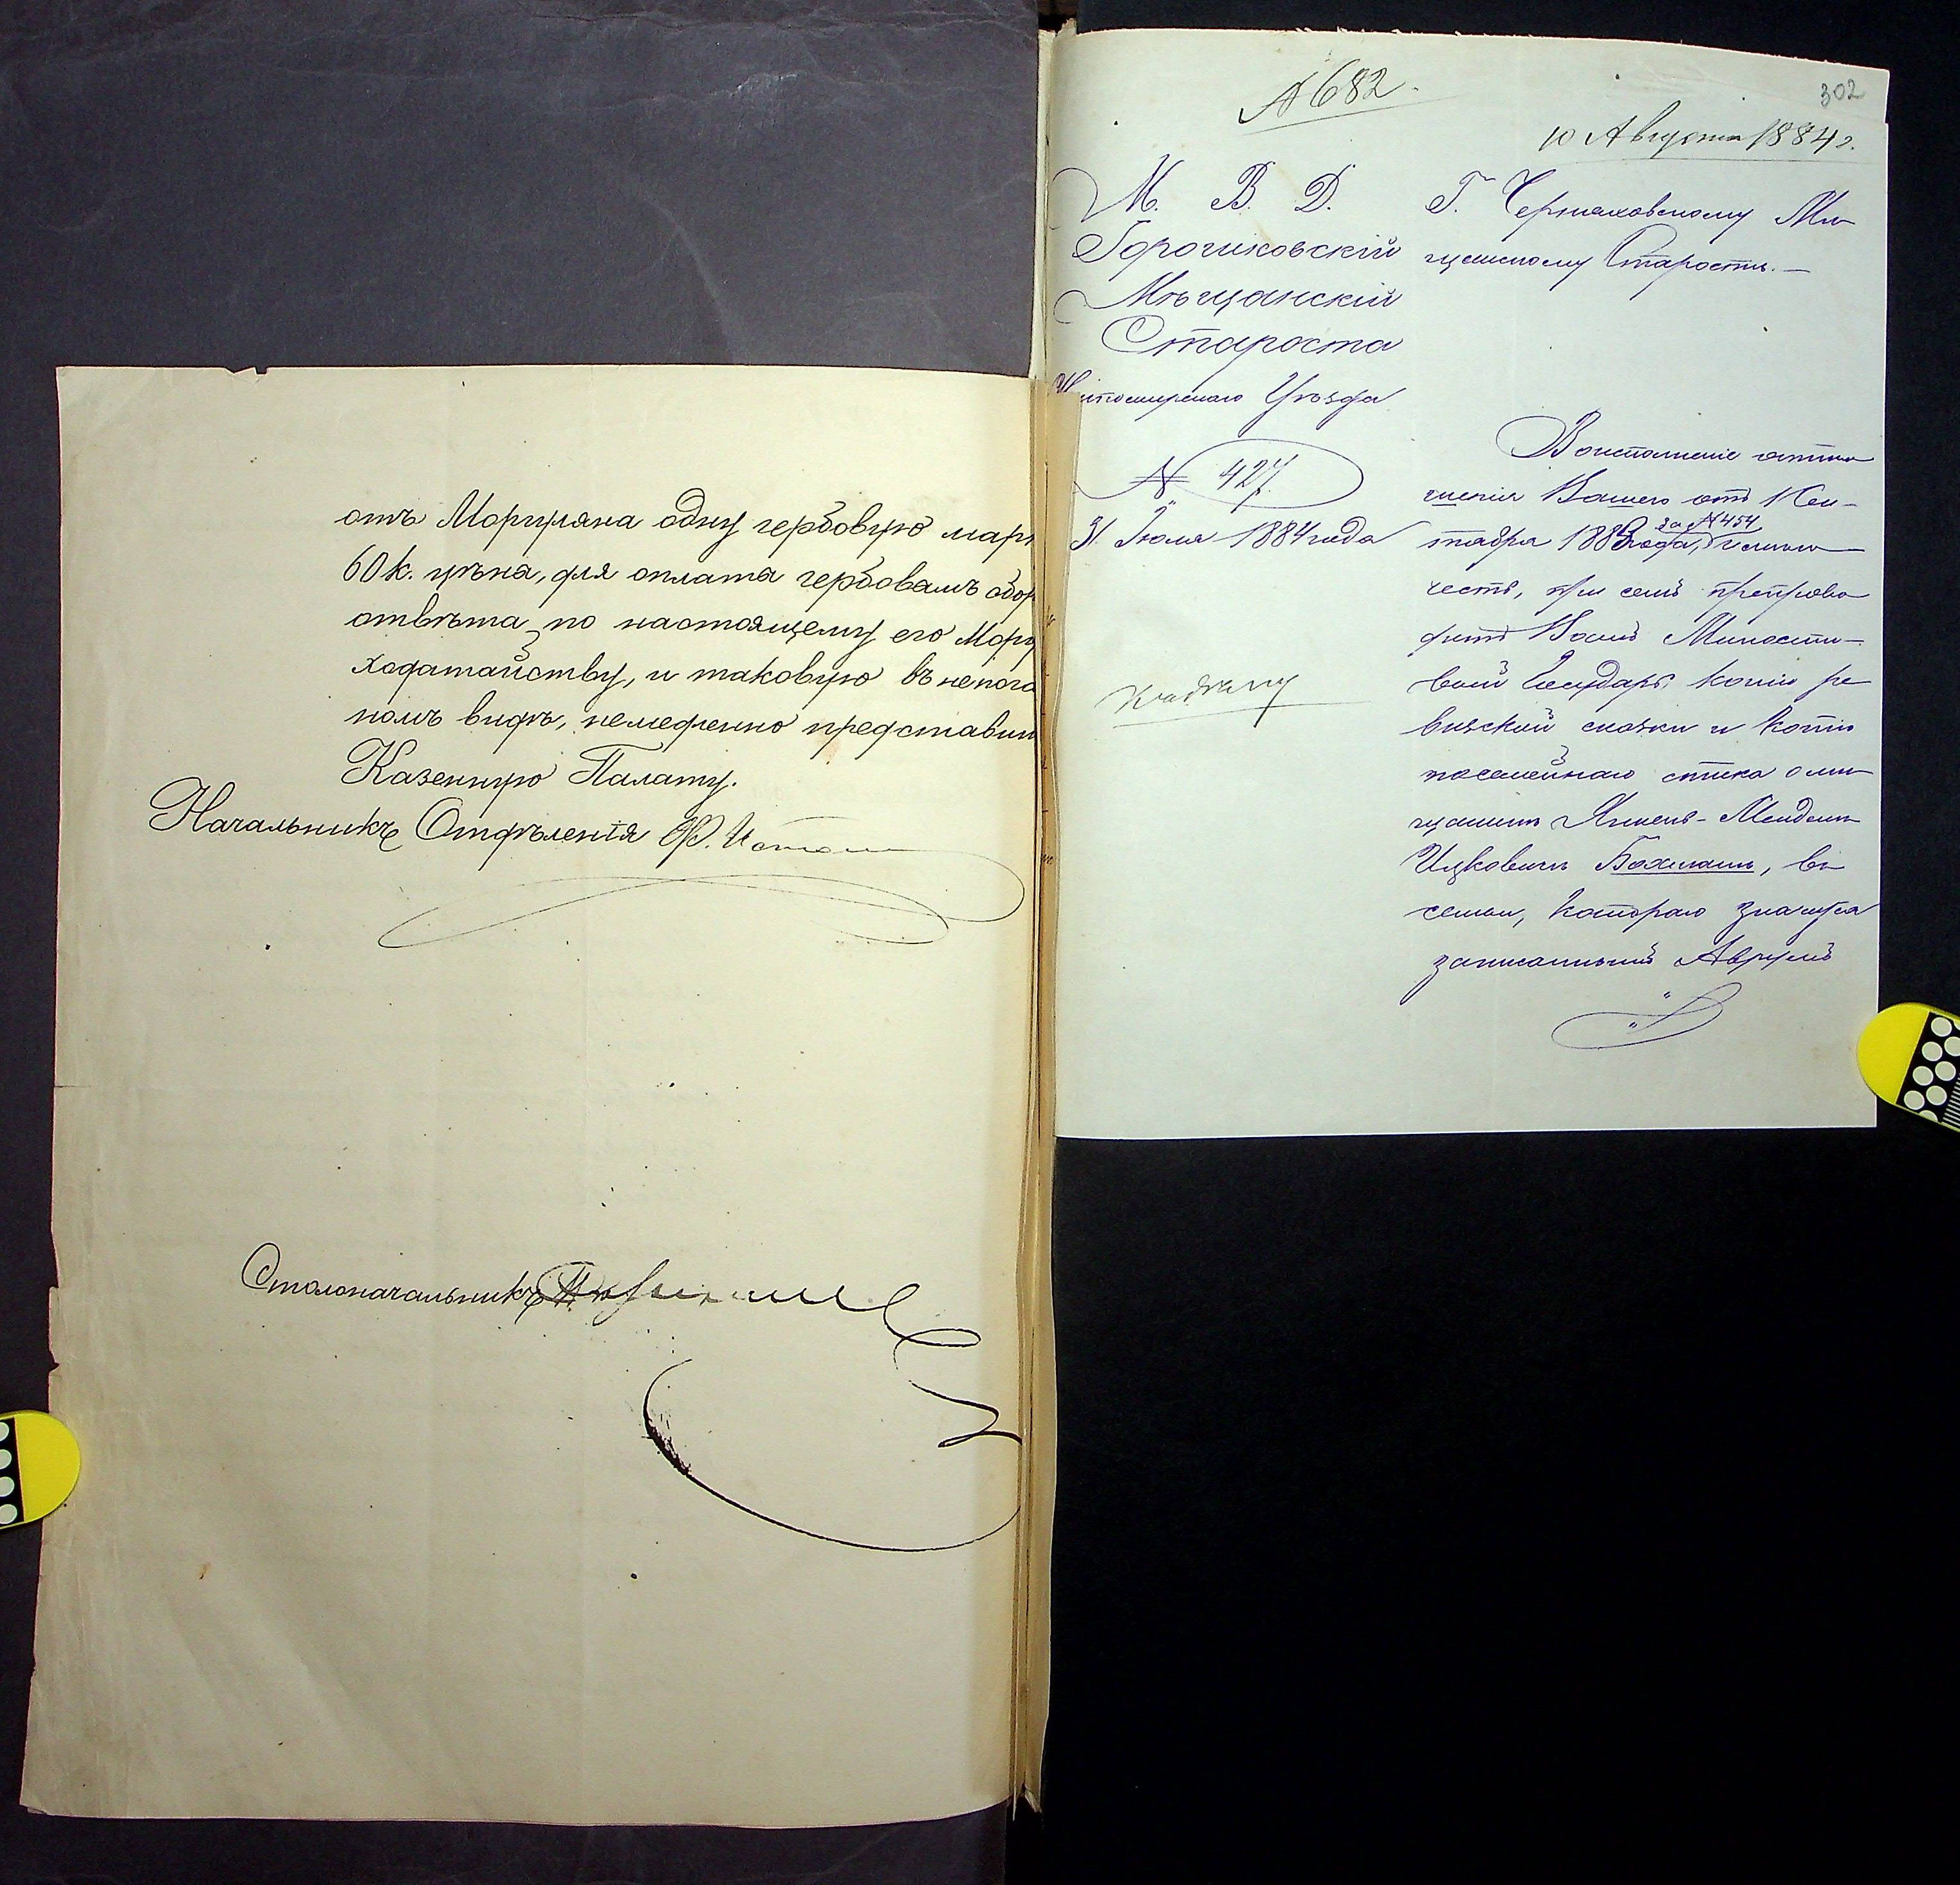 отъ Моргуляна одну гербовую марк
60 к. цѣна, для оплата гербовамъ сбор
отвѣта по настоящему его Моргу
ходатайству, и таковую въ непога
номъ видѣ, немедленно представит
Казенную Палату.
Начальникъ Отдѣленія
Столоначальникъ
302
№ 682.
10 Августа 1884 г.
М. В. Д.
Горошковскій
Мѣщанскій
Староста
Житомирскаго Уѣзда
№ 427.
31 Іюля 1884 года
Г. Черняховскому Мѣ
щанскому Старостѣ.—
Воисполненіе отно
шенія Вашего отъ 1 Сен-
тября 1883 года, за № 454 имѣю
честь, при семъ препрово
дить Вамъ Милости-
вый Государь, копію ре
визской сказки и копію
посемейнаго списка о мѣ
щанинѣ Янкель-Мендель
Ицковичъ Бахманъ, въ
семьи, котораго значится
записанный Аврумъ